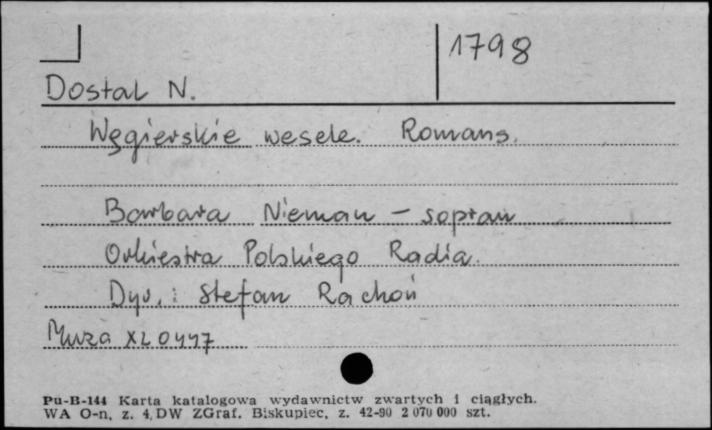 1798
Dostal N.
Węgierskie wesele. Romans.
Barbara Nieman – sopran
Orkiestra Polskiego Radia.
Dyr.: Stefan Rachoń
Muza XL 0447
Pu-B-144 Karta katalogowa wydawnictw zwartych i ciągłych.
WA O-n, z. 4, DW ZGraf. Biskupiec, z. 42-90 2 070 000 szt.